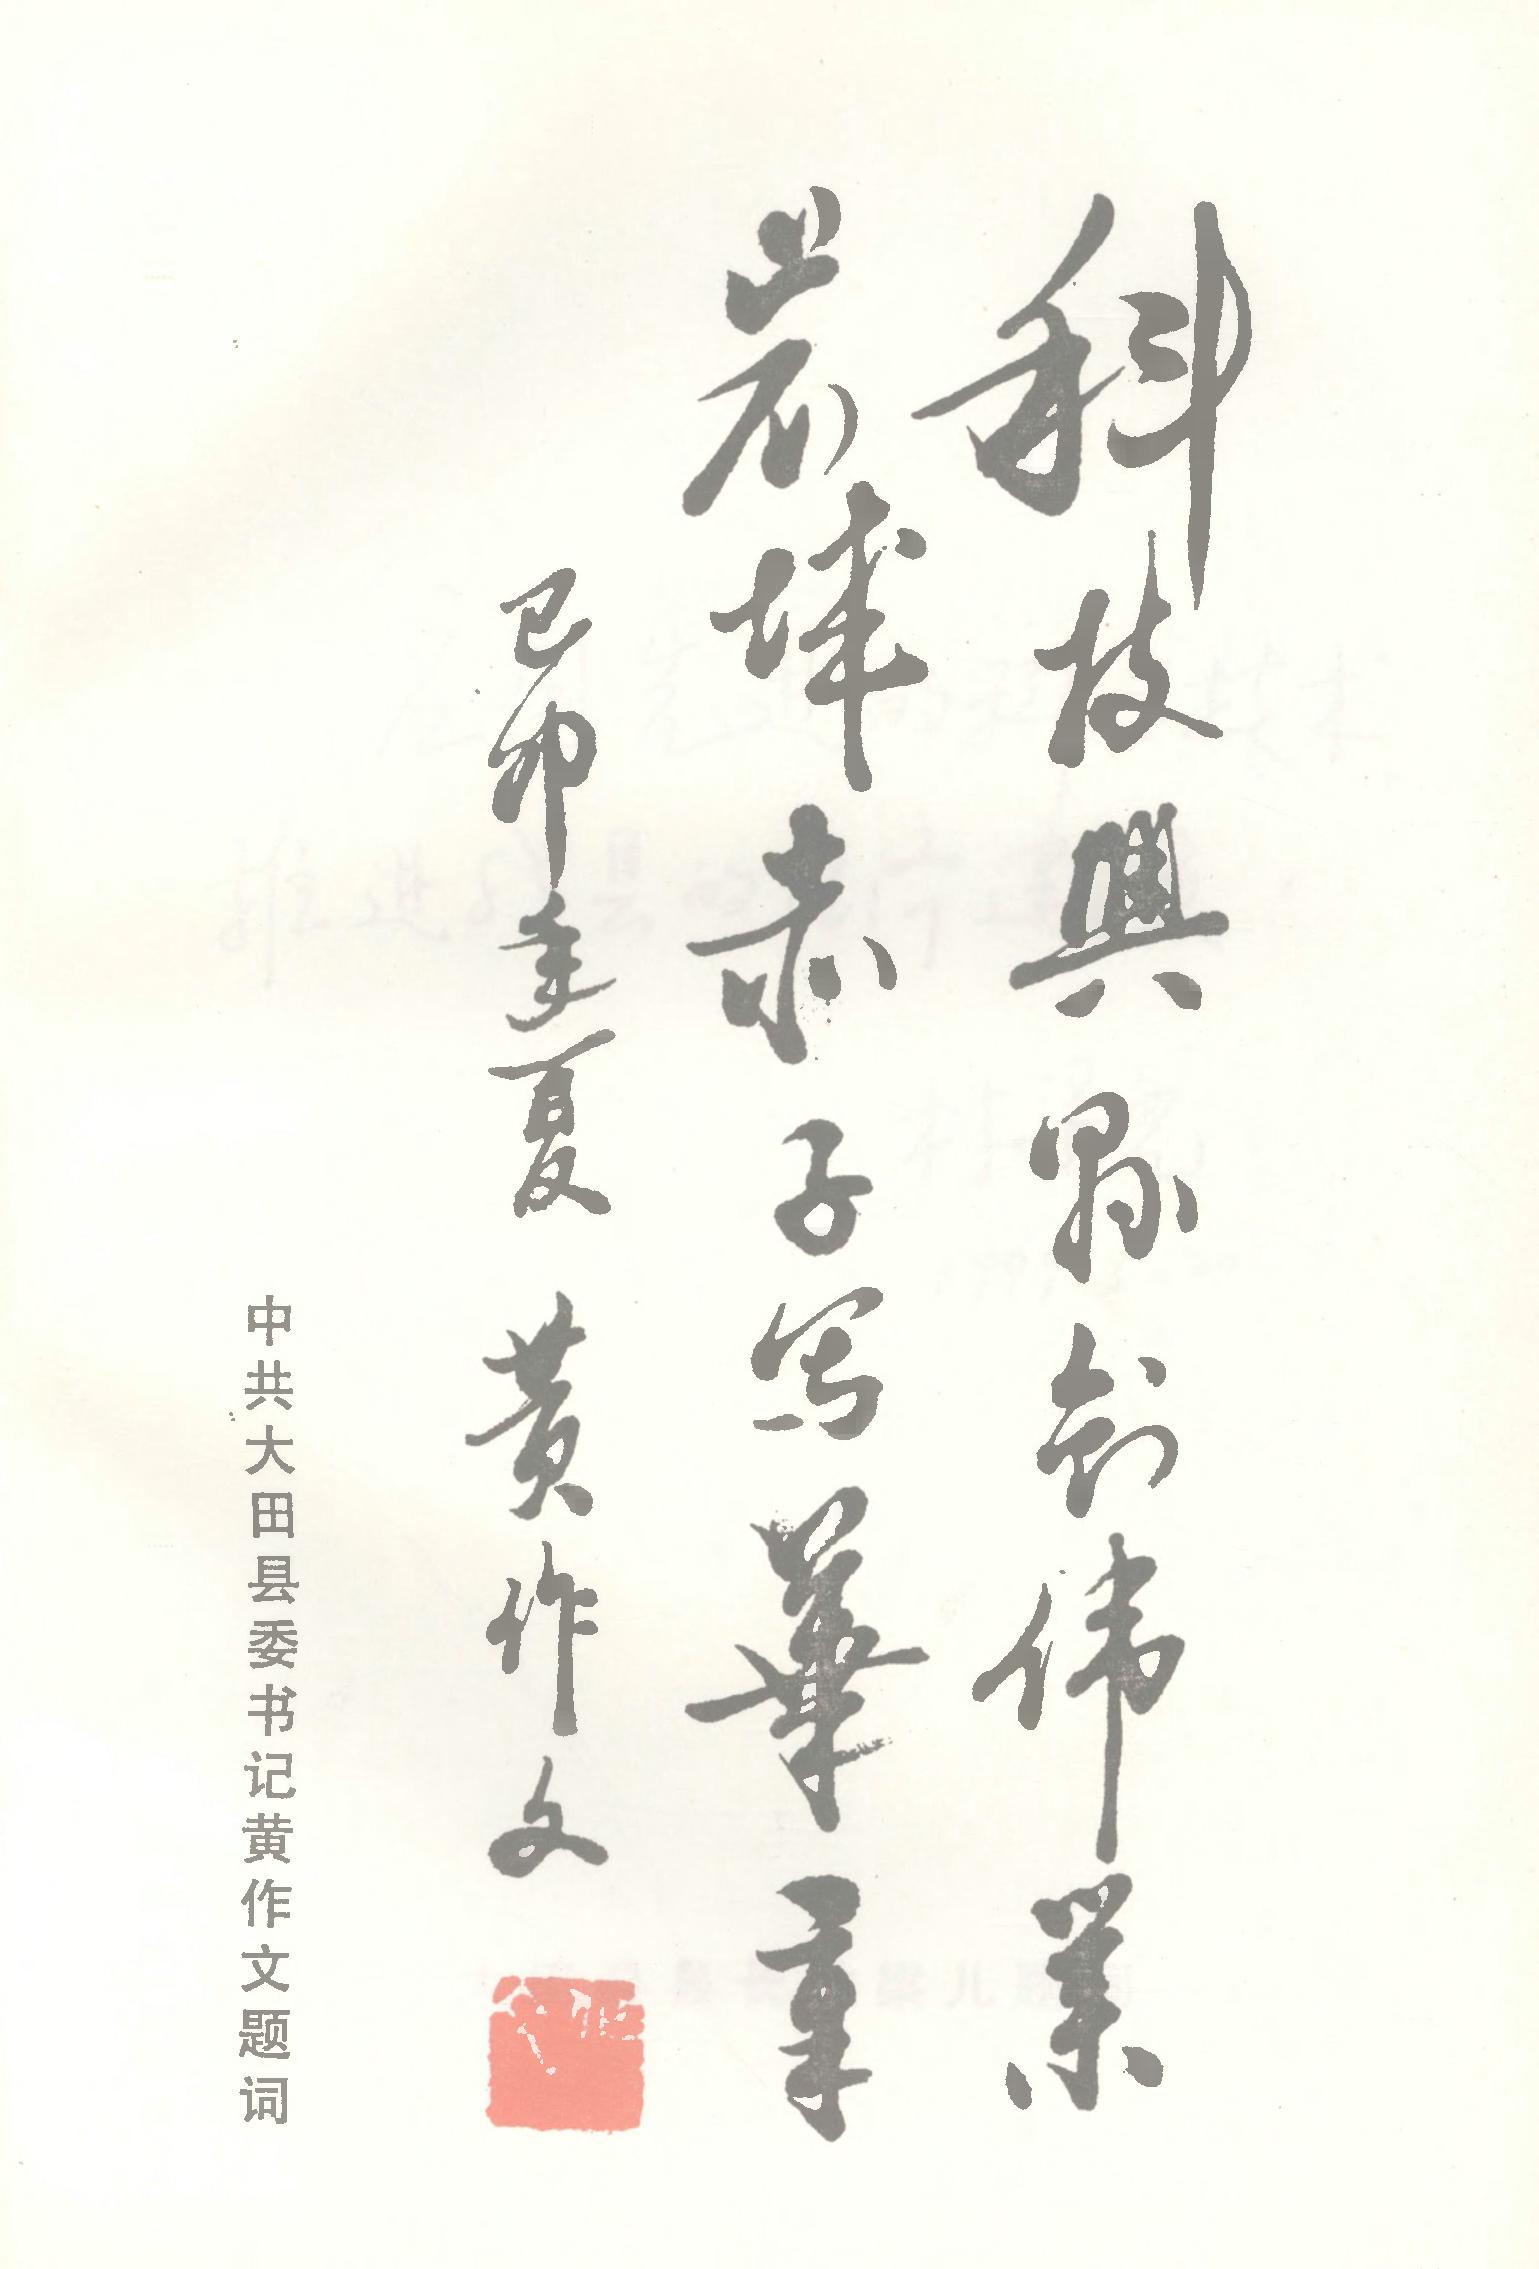 科技興縣創伟業
岩城赤子写華章
己卯年夏 黄作文
中共大田县委书记黄作文题词